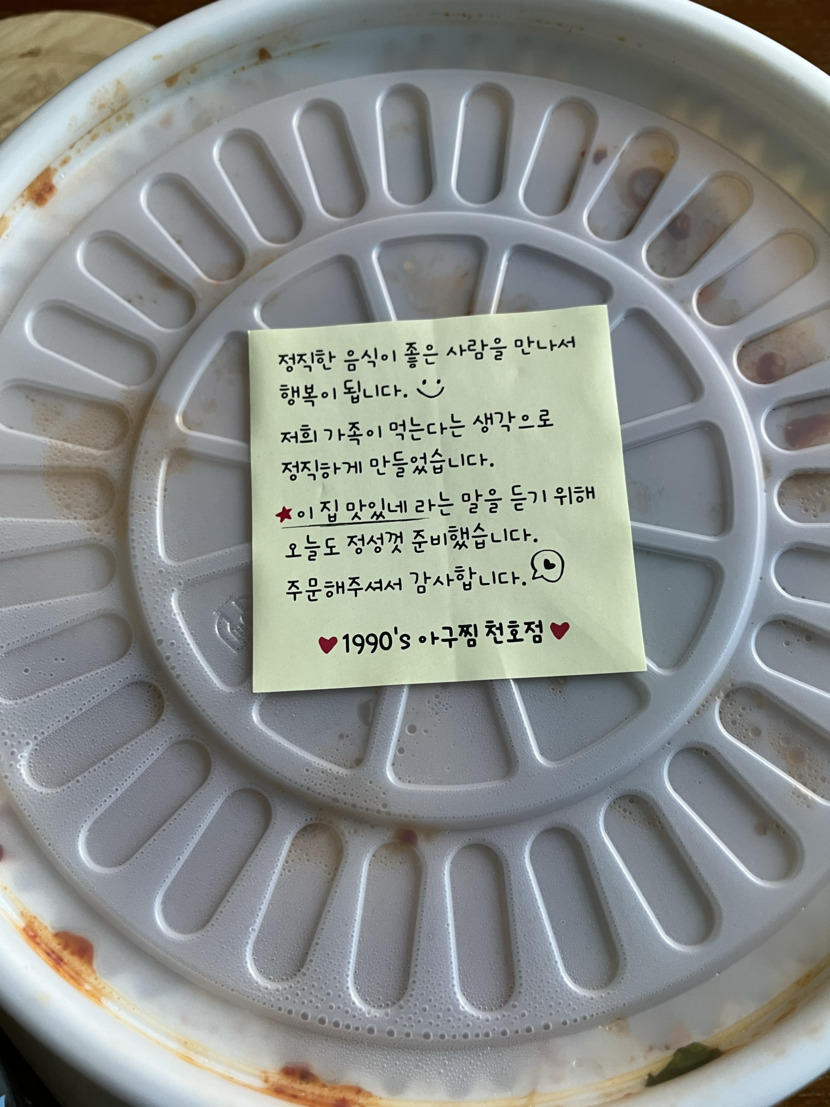 정직한 음식이 좋은 사람을 만나서
행복이 됩니다.
저희 가족이 먹는다는 생각으로
정직하게 만들었습니다.
★이 집 맛있네 라는 말을 듣기 위해
오늘도 정성껏 준비했습니다.
주문해주셔서 감사합니다.
♥1990's 아구찜 천호점♥